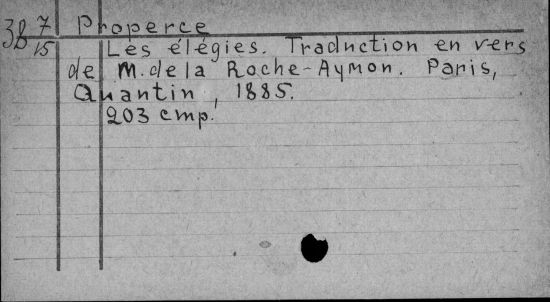 3В 7/15 Properce
Les élégies. Traduction en vers
de M. de la Roche-Aymon. Paris,
Quantin, 1885.
203 cmp.